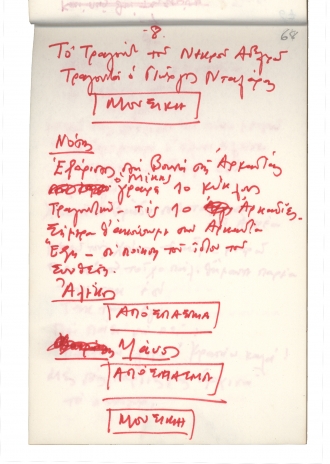 -8-
68
Τὸ Τραγούδι τοῦ Νεκροῦ Ἀδελφοῦ
Τραγουδᾶ ὁ Γιῶργος Νταλάρας
ΜΟΥΣΙΚΗ
Νότης
Ἐξόριστος στὴ Βουνὴ στῆς Ἀρκαδίας
ὁ Μίκης
γράφει 10 κύκλους
τραγουδιῶν - τὶς 10 Ἀρκαδίες.
Σήμερα θ' ἀκούσουμε στὴν Ἀρκαδία
Ἕξη - σὲ ποίηση τοῦ ἴδιου τοῦ
συνθέτη.
Ἀλέκος
ΑΠΟΣΠΑΣΜΑ
Μάνος
ΑΠΟΣΠΑΣΜΑ
ΜΟΥΣΙΚΗ